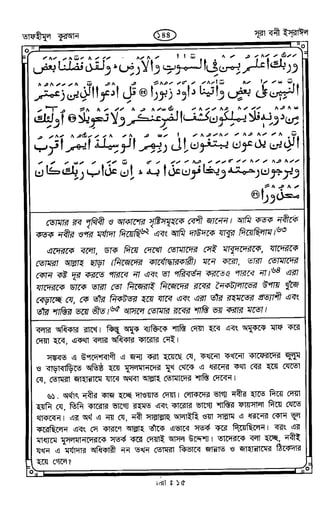 তাফহীমুল কুরআন
১৪৪
সূরা বনী ইসরাঈল
وَرَبُّكَ أَعْلَمُ بِمَنْ فِي السَّمٰوٰتِ وَالْأَرْضِ ۗ وَلَقَدْ فَضَّلْنَا بَعْضَ
النَّبِيِّنَ عَلٰى بَعْضٍ وَّاٰتَيْنَا دَاوٗدَ زَبُوْرًا ۝ قُلِ ادْعُوا الَّذِيْنَ زَعَمْتُمْ
مِّنْ دُوْنِهٖ فَلَا يَمْلِكُوْنَ كَشْفَ الضُّرِّ عَنْكُمْ وَلَا تَحْوِيْلًا ۝ أُولٰٓئِكَ
الَّذِيْنَ يَدْعُوْنَ يَبْتَغُوْنَ إِلٰى رَبِّهِمُ الْوَسِيْلَةَ أَيُّهُمْ أَقْرَبُ
وَيَرْجُوْنَ رَحْمَتَهٗ وَيَخَافُوْنَ عَذَابَهٗ ۗ إِنَّ عَذَابَ رَبِّكَ كَانَ
مَحْذُوْرًا ۝
তোমার রব পৃথিবী ও আকাশের সৃষ্টিসমূহকে বেশী জানেন। আমি কতক নবীকে
কতক নবীর ওপর মর্যাদা দিয়েছি৬২ এবং আমি দাউদকে যাবুর দিয়েছিলাম।৬৩
এদেরকে বলো, ডাক দিয়ে দেখো তোমাদের সেই মাবুদদেরকে, যাদেরকে
তোমরা আল্লাহ ছাড়া (নিজেদের কার্যোদ্ধারকারী) মনে করো, তারা তোমাদের
কোন কষ্ট দূর করতে পারবে না এবং তা পরিবর্তন করতেও পারবে না।৬৪ এরা
যাদেরকে ডাকে তারা তো নিজেরাই নিজেদের রবের নৈকট্যলাভের উপায় খুঁজে
বেড়াচ্ছে যে, কে তাঁর নিকটতর হয়ে যাবে এবং এরা তাঁর রহমতের প্রত্যাশী এবং
তাঁর শাস্তির ভয়ে ভীত।৬৫ আসলে তোমার রবের শাস্তি ভয় করার মতো।
বলার অধিকার রাখে। কিন্তু অমুক ব্যক্তিকে শাস্তি দেয়া হবে এবং অমুককে মাফ করে
দেয়া হবে, একথা বলার অধিকার কারোর নেই।
সম্ভবত এ উপদেশবাণী এ জন্য করা হয়েছে যে, কখনো কখনো কাফেরদের জুলুম
ও বাড়াবাড়িতে অতিষ্ঠ হয়ে মুসলমানদের মুখ থেকে এ ধরনের কথা বের হয়ে যেতো
যে, তোমরা জাহান্নামে যাবে অথবা আল্লাহ তোমাদের শাস্তি দেবেন।
৬১. অর্থাৎ নবীর কাজ হচ্ছে দাওয়াত দেয়া। লোকদের ভাগ্য নবীর হাতে দিয়ে দেয়া
হয়নি যে, তিনি কারোর ভাগ্যে রহমত এবং কারোর ভাগ্যে শাস্তির ফায়সালা দিয়ে যেতে
থাকবেন। এর অর্থ এ নয় যে, নবী সাল্লাল্লাহু আলাইহি ওয়া সাল্লাম এ ধরনের কোন ভুল
করেছিলেন এবং সে কারণে আল্লাহ তাঁকে এভাবে সতর্ক করে দিয়েছিলেন। বরং এর
মাধ্যমে মুসলমানদেরকে সতর্ক করে দেয়াই আসল উদ্দেশ্য। তাদেরকে বলা হচ্ছে, নবীই
যখন এ মর্যাদার অধিকারী নন তখন তোমরা কিভাবে জান্নাত ও জাহান্নামের ঠিকেদার
হয়ে গেলে?